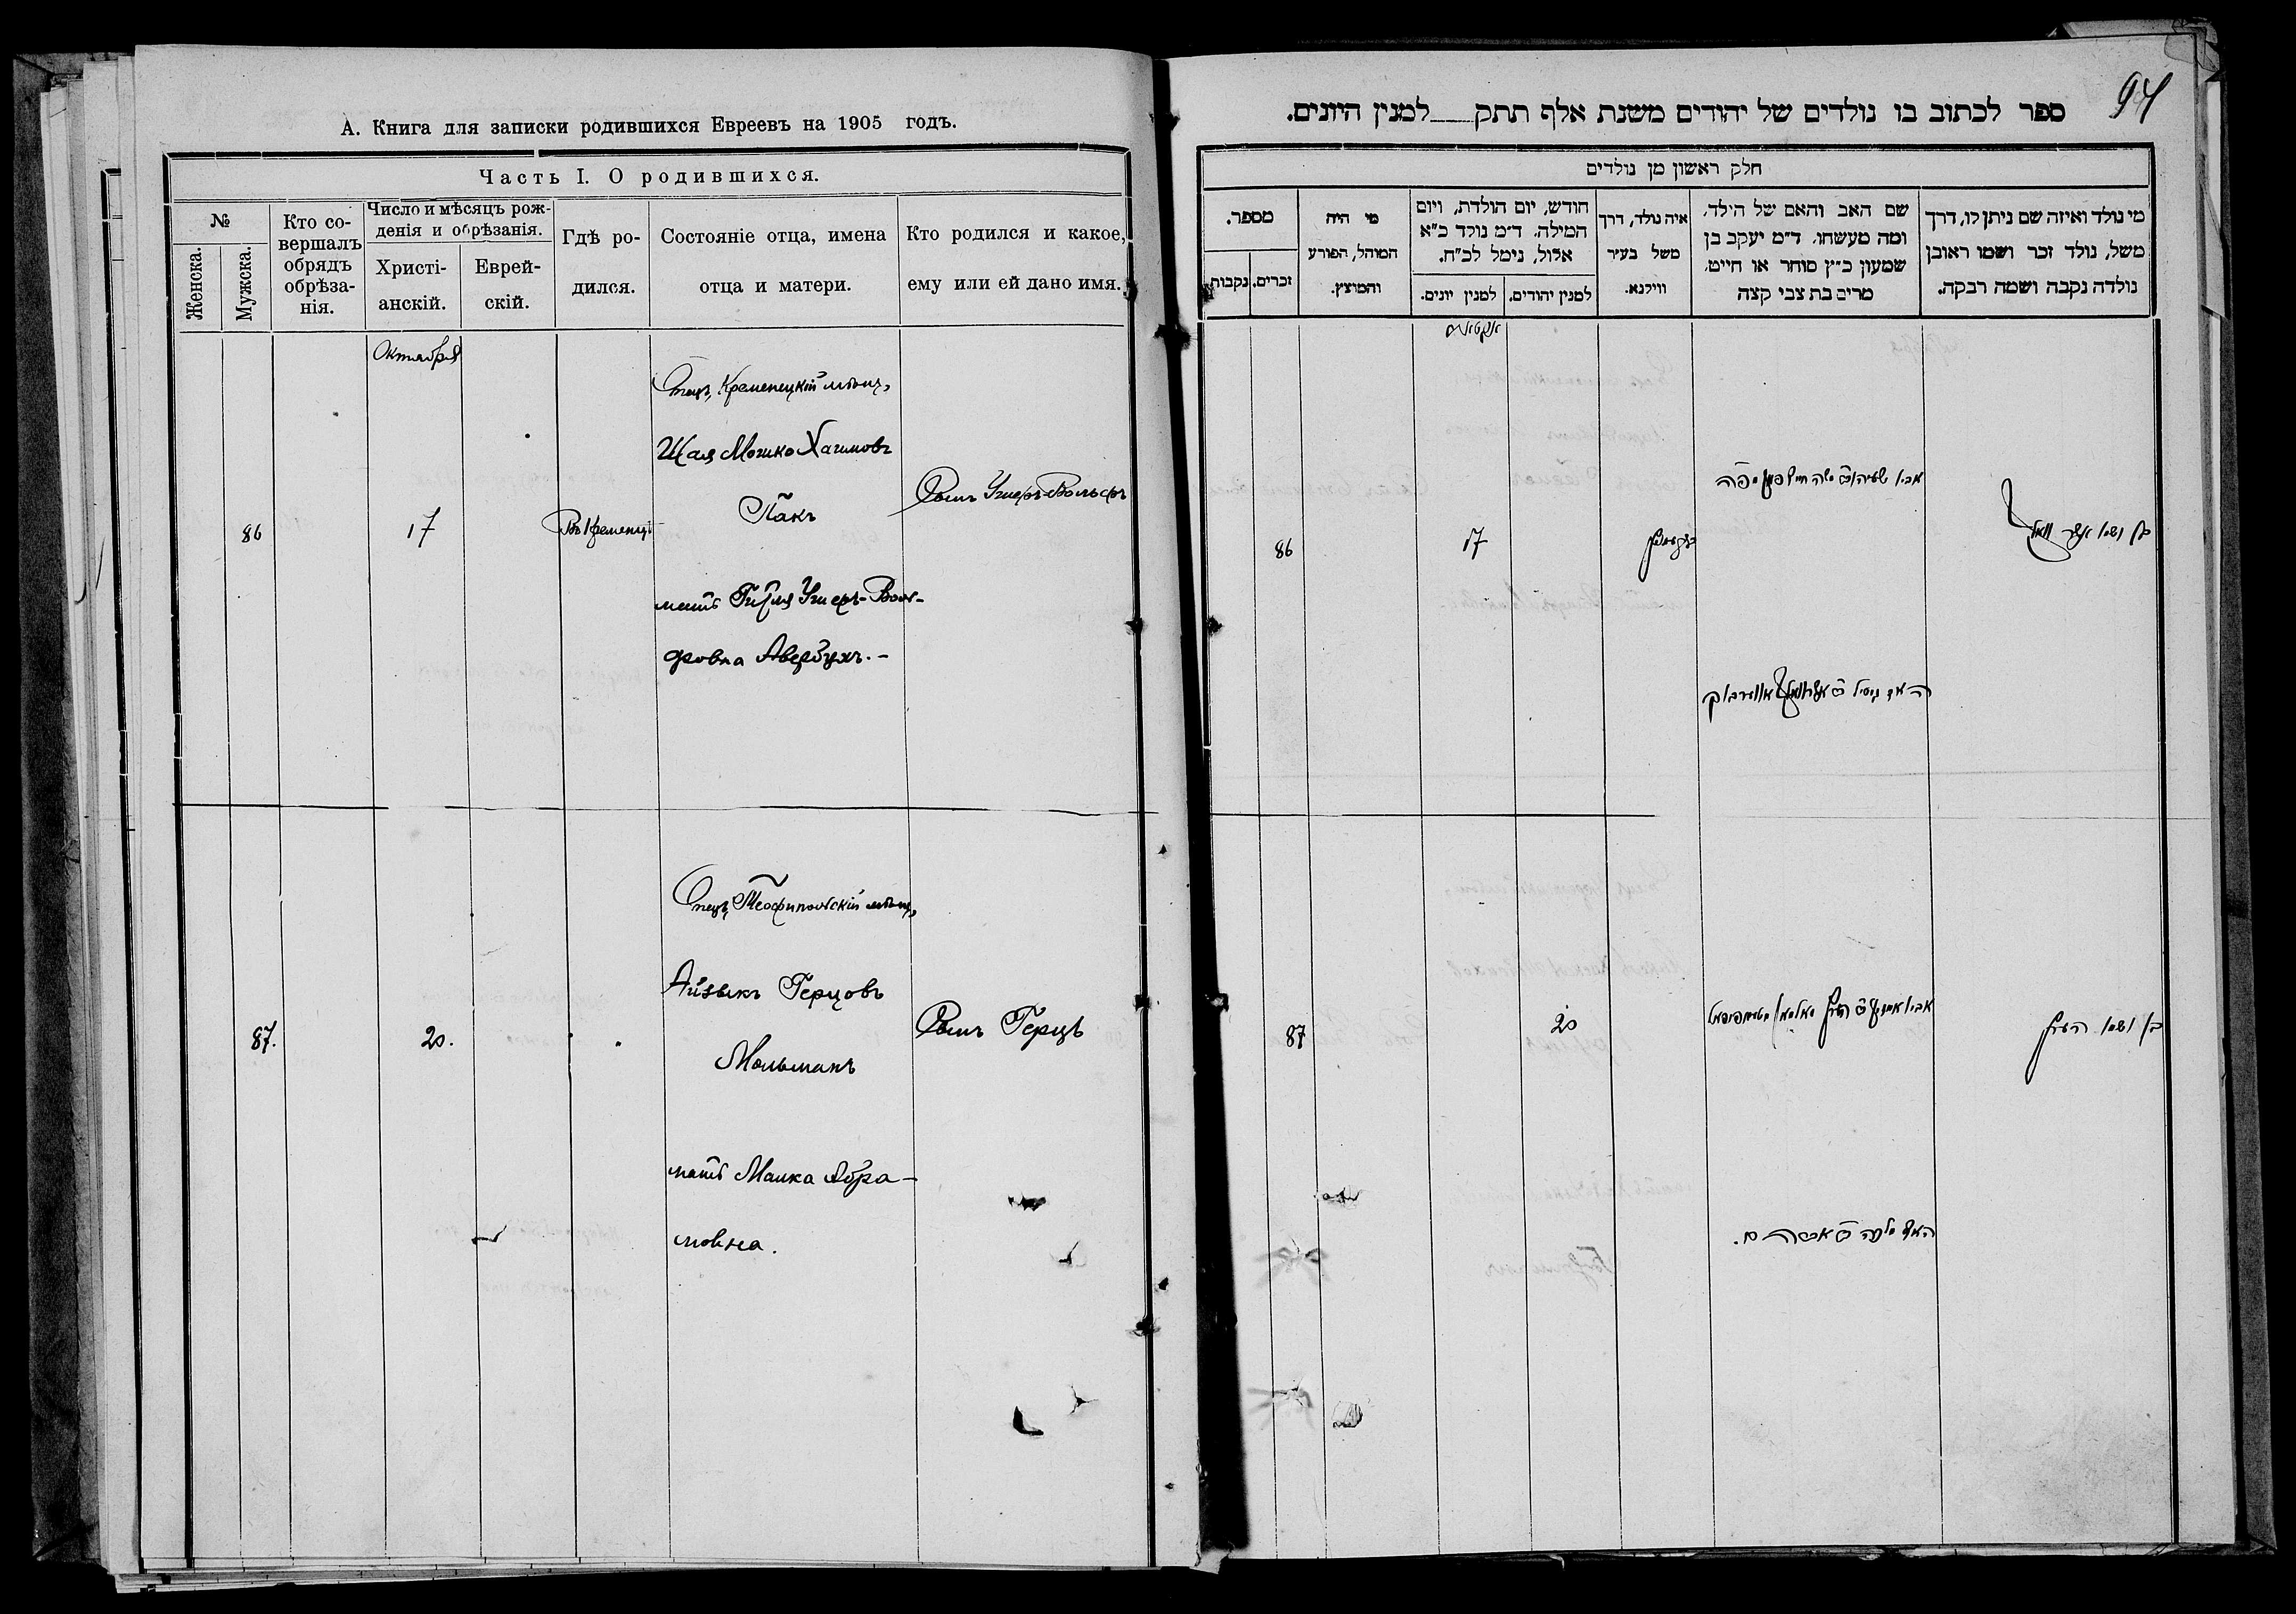 А. Книга для записки родившихся Евреевъ на 1905 годъ.
Часть I. О родившихся.
№
Женска.
Мужска.
Кто со-
вершалъ
обрядъ
обрѣза-
нія.
Число и мѣсяцъ рож-
денія и обрѣзанія.
Христі-
анскій.
Еврей-
скій.
Гдѣ ро-
дился.
Состояніе отца, имена
отца и матери.
Кто родился и какое,
ему или ей дано имя.
Октября
86
17
Въ Кременцѣ
Отецъ, Кременецкій мѣщ.,
Шая Мошко Хаимовъ
Пакъ
мать Гитля Ушеръ-Воль-
фовна Авербухъ.-
Сынъ Ушеръ-Вольфъ
87.
20.
Отецъ, Теофипольскій мѣщ.,
Айзыкъ Герцовъ
Мольманъ
мать Малка Абра-
мовна.
Сынъ Герцъ
94
ספר לכתוב בו נולדים של יהודים משנת אלף תתק למנין היונים.
חלק ראשון מן נולדים
מי נולד ואיזה שם ניתן לו, דרך
משל, נולד זכר ושמו ראובן
נולדה נקבה ושמה רבקה.
שם האב והאם של הילד,
ומה מעשהו. ד״מ יעקב בן
שמעון כ״ץ סוחר או חייט,
מרים בת צבי קצה
איה נולד, דרך
משל בעיר
ווילנא.
חודש, יום הולדת, ויום
המילה. ד״מ נולד כ״א
אלול, נימל לכ״ח.
למנין יהודים.
למנין יונים.
מי היה
המוהל, הפורע
והמוצץ.
מספר.
זכרים.
נקבות
86
17
בן ושמו אשר וואלף
87
20
בן ושמו הערץ